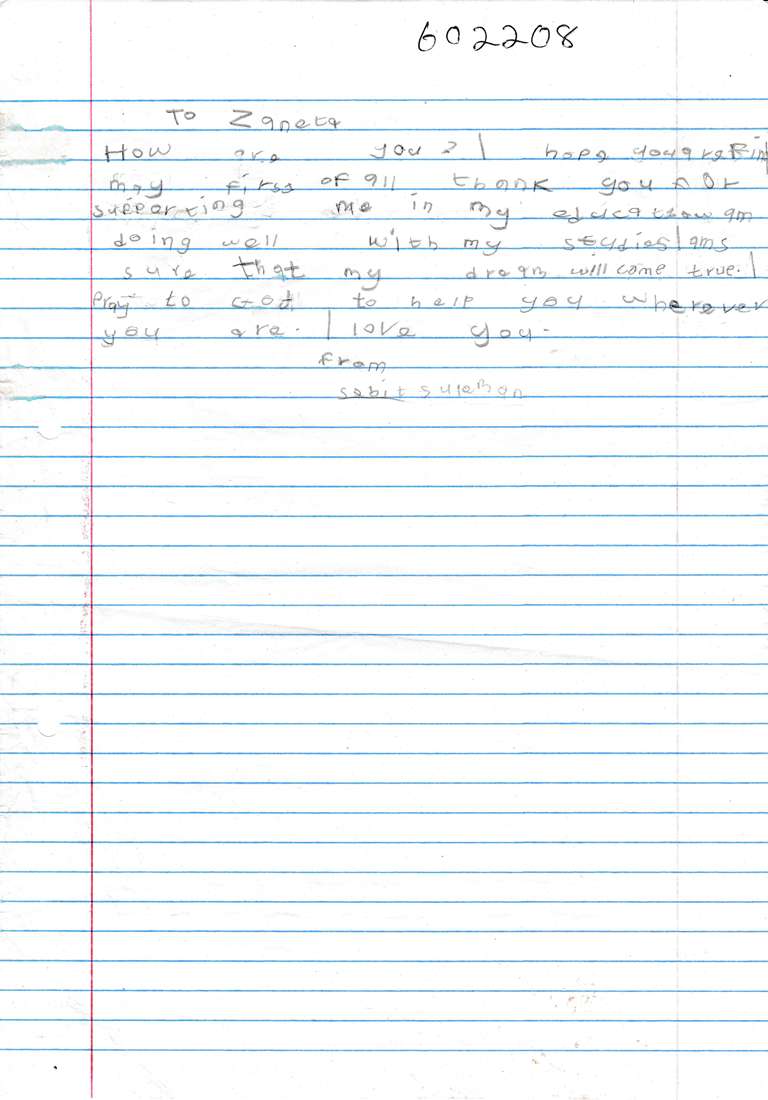 602208
To Zaneta
How are you? I hope you are fin
may first of all thank you for
supporting me in my education am
doing well with my studies I ams
sure that my dream will come true. I
Pray to God to help you wherever
you are. I love you.
from
sabit suleman